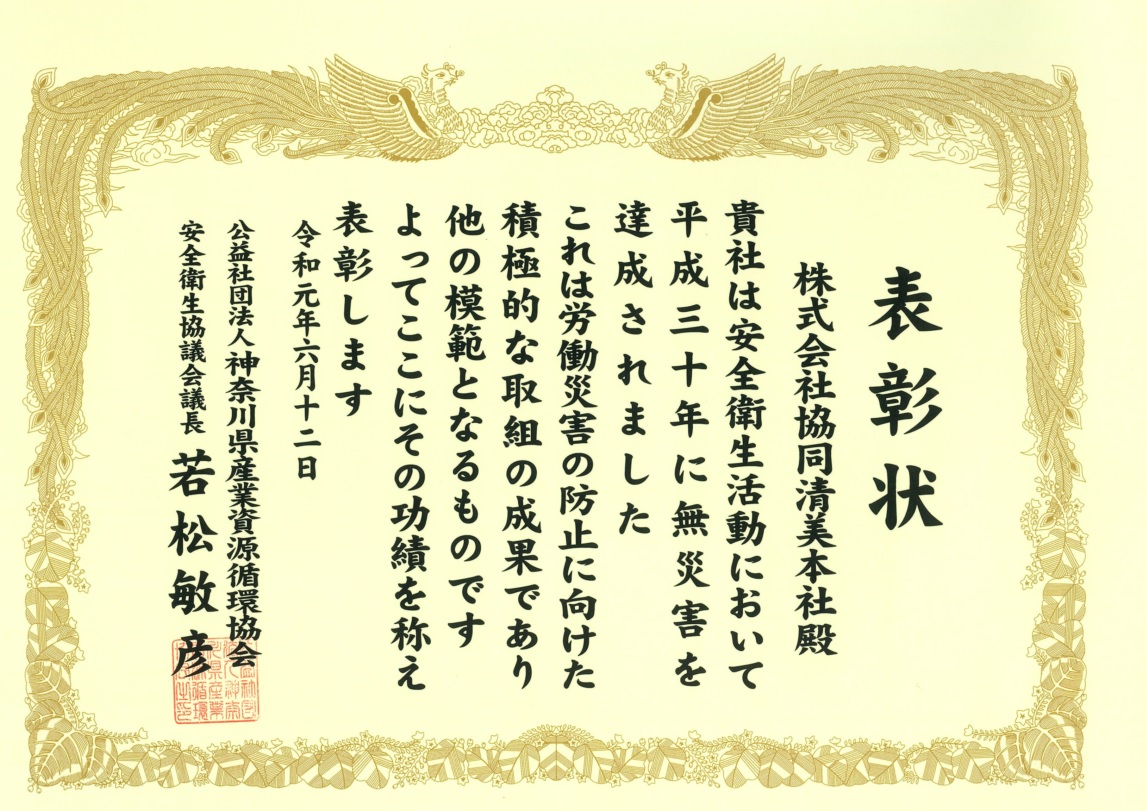 表彰状
株式会社協同清美本社殿
貴社は安全衛生活動において
平成三十年に無災害を
達成されました
これは労働災害の防止に向けた
積極的な取組の成果であり
他の模範となるものです
よってここにその功績を称え
表彰します
令和元年六月十二日
公益社団法人神奈川県産業資源循環協会
安全衛生協議会議長 若松敏彦